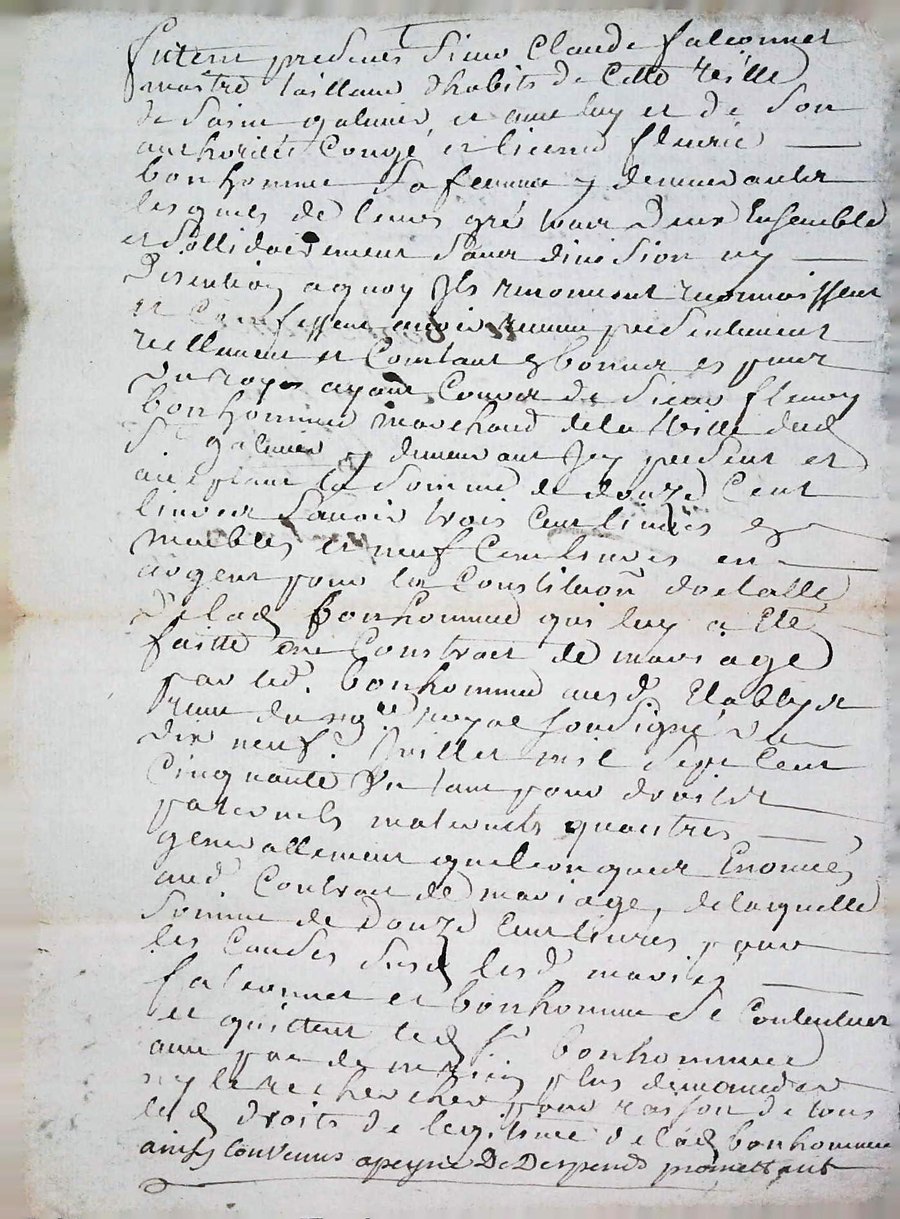 furent presents Sieur Claude falconnet
maitre tailleur d'habits de Cette ville
de Saint galmier et avec luy et de Son
authorité Congé et licence fleurie
bonhomme Sa femme y demeurants
lesquels de leurs gré tous deux Ensemble
et Sollidairement Sans division ny
Discution a quoy Ils renoncent reconnoissent
et Confessent avoir receu presentement
reellement et Comtant en bonnes es peces
du roy ayant Cours de Sieur fleury
bonhomme marchand de la Ville dud
St galmier y demeurant Icy present et
acceptant la Somme de douze Cent
livres Savoir trois Cent livres en
meubles et neuf Cent livres en
argent pour la Constituon dotalle
De lad bonhomme qui luy a Eté
faitte en Contract de mariage
par led. bonhomme aud. Etably et
receu du nore royal Soussigné du
dix neuf Juillet mil Sept Cent
Cinquante un tant pour droits
paternels maternels qu'autres
generallement quelconques Enoncés
aud. Contrat de mariage, de laquelle
Somme de Douze Cent livres pour
les Causes Susd lesd mariés
falconnet et bonhomme Se Contentent
et quittent led Sr bonhomme
avec pac de ne rien plus demander
ny le rechercher pour raison de tous
lesd droits de legitime de lad bonhomme
ainsy Convenus a peyne De Despends promettant